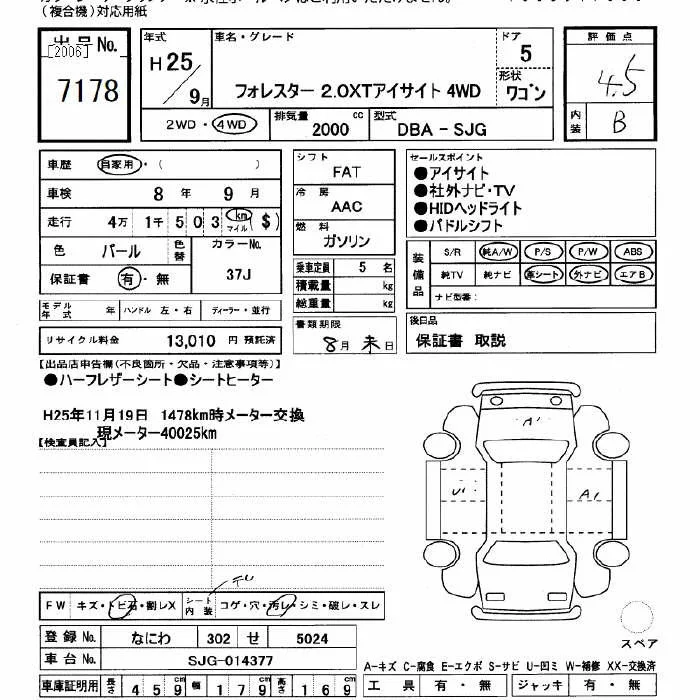 (複合機)対応用紙
出品No.
[2006]
7178
年式
H25/9月
車名・グレード
フォレスター 2.0XTアイサイト 4WD
ドア
5
形状
ワゴン
2WD・4WD
排気量
2000 cc
型式
DBA - SJG
評価点
4.5
内装
B
車歴 自家用・( )
車検 8 年 9 月
走行 4万 1千 5 0 3 km マイル ($)
色 パール 色替 カラーNo.
37J
保証書 有・無
モデル年式 年 ハンドル 左・右 ディーラー・並行
リサイクル料金 13,010 円 預託済
シフト
FAT
冷房
AAC
燃料
ガソリン
乗車定員 5 名
積載量 kg
総重量 kg
書類期限
8月 末日
セールスポイント
●アイサイト
●社外ナビ・TV
●HIDヘッドライト
●パドルシフト
装備品
S/R 純A/W P/S P/W ABS
純TV 純ナビ 革シート 外ナビ エアB
ナビ型番:
後日品
保証書 取説
【出品店申告欄(不良箇所・欠品・注意事項等)】
●ハーフレザーシート●シートヒーター
H25年11月19日 1478km時メーター交換
現メーター40025km
【検査員記入】
A1
U1
A1
FW キズ・トビ石・割レX シート内装 コゲ・穴・汚レ・シミ・破レ・スレ
登録No. なにわ 302 せ 5024
車台No. SJG-014377
車庫証明用 長さ 4 5 9 cm 幅 1 7 9 cm 高さ 1 6 9 cm
スペア
A-キズ C-腐食 E-エクボ S-サビ U-凹ミ W-補修 XX-交換済
工具 有・無 ジャッキ 有・無